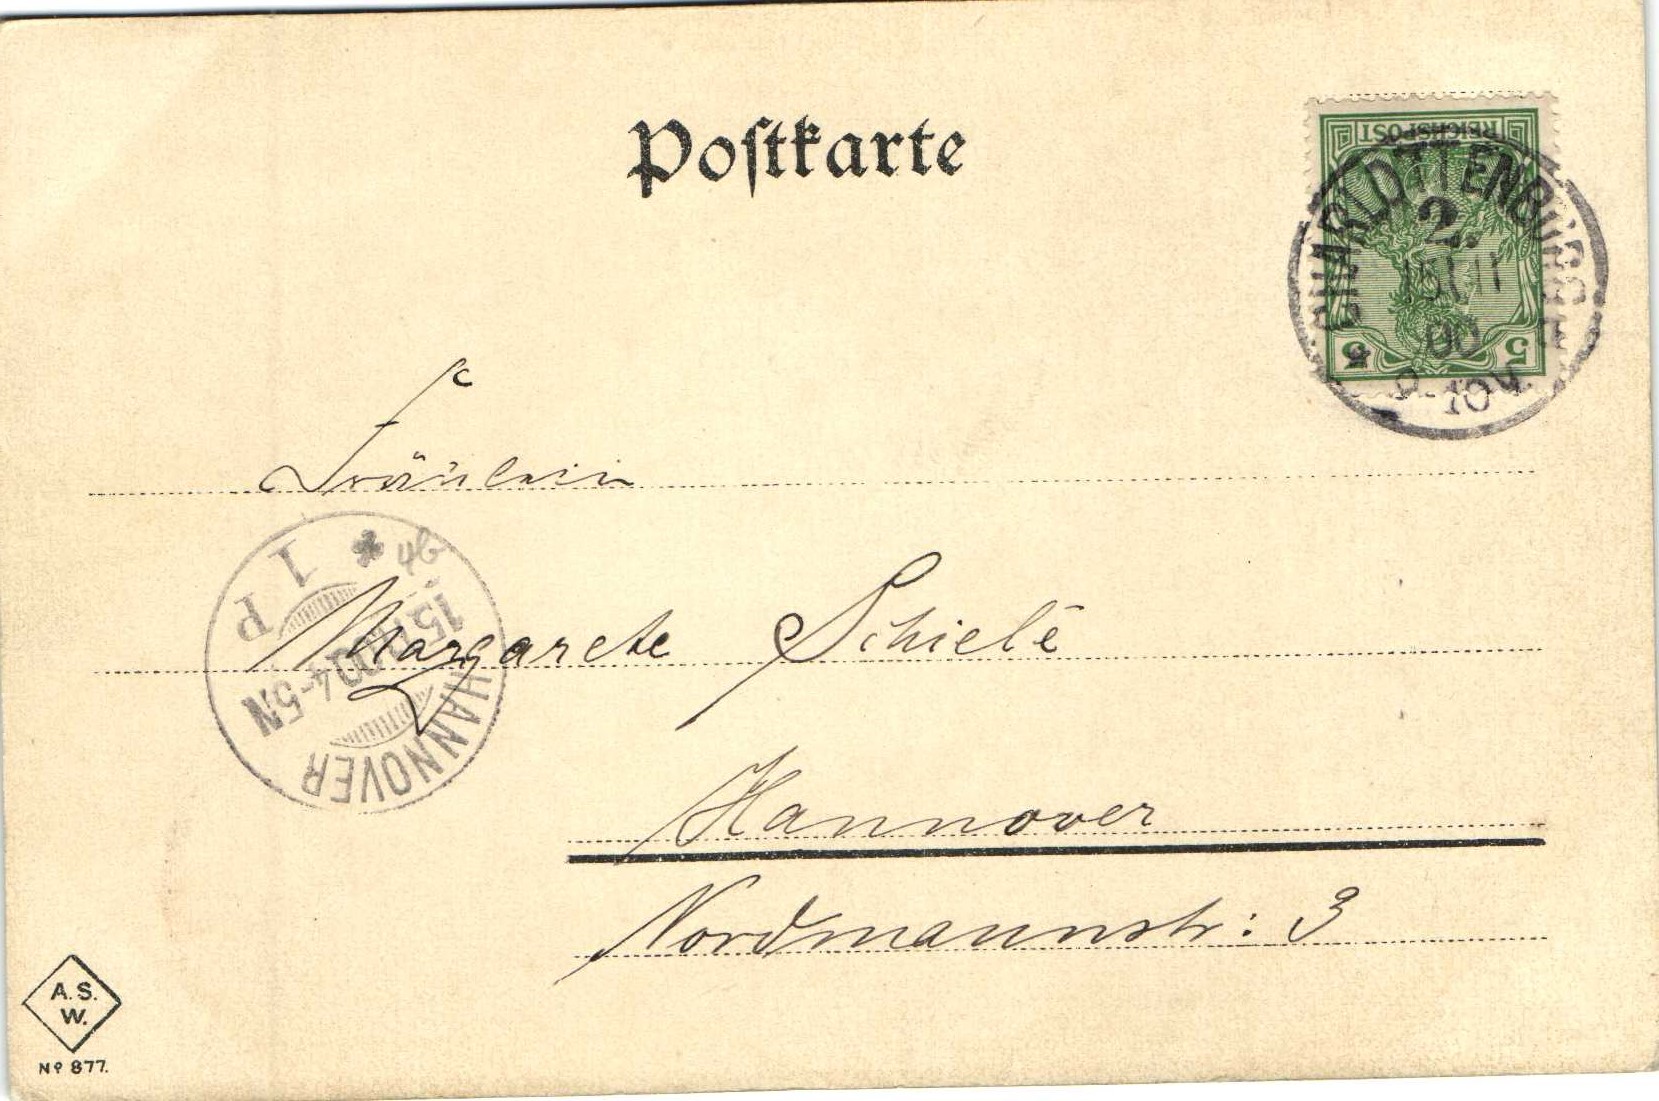 Postkarte
REICHSPOST
5 5
CHARLOTTENBURG
2.
00
9-10V.
Fräulein
1 P
4b
Margarete Schiele
15.
00 4-5N
HANNOVER
Hannover
Nordmannstr: 3
A. S.
W.
No 877.